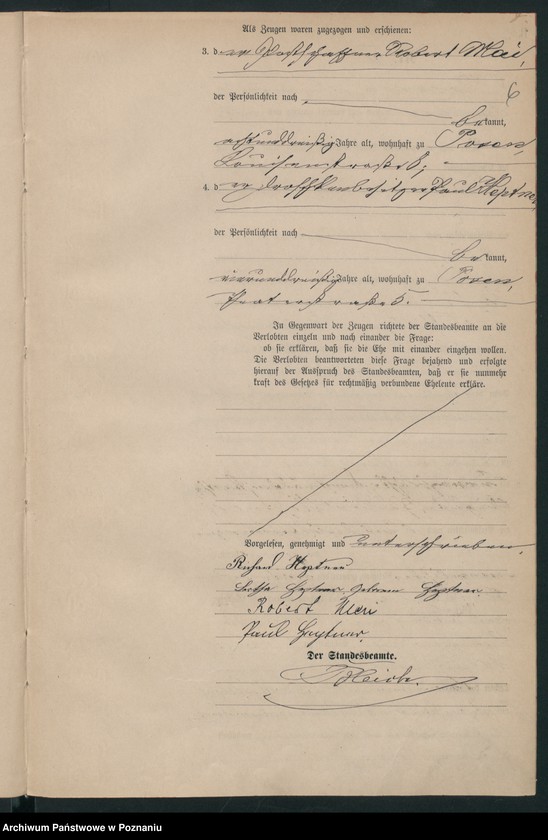 Als Zeugen waren zugezogen und erschienen:
3. der Postschaffner Robert Mai,
6
der Persönlichkeit nach
bekannt,
achtunddreißig Jahre alt, wohnhaft zu Posen,
4. der Droschkenbesitzer Paul Heptner,
der Persönlichkeit nach
bekannt,
vierunddreißig Jahre alt, wohnhaft zu Posen,
In Gegenwart der Zeugen richtete der Standesbeamte an die
Verlobten einzeln und nach einander die Frage:
ob sie erklären, daß sie die Ehe mit einander eingehen wollen.
Die Verlobten beantworteten diese Frage bejahend und erfolgte
hierauf der Ausspruch des Standesbeamten, daß er sie nunmehr
kraft des Gesetzes für rechtmäßig verbundene Eheleute erkläre.
Vorgelesen, genehmigt und unterschrieben.
Richard Heptner
Heptner geborene Heptner.
Robert Mai
Paul Heptner.
Der Standesbeamte.
Archiwum Państwowe w Poznaniu